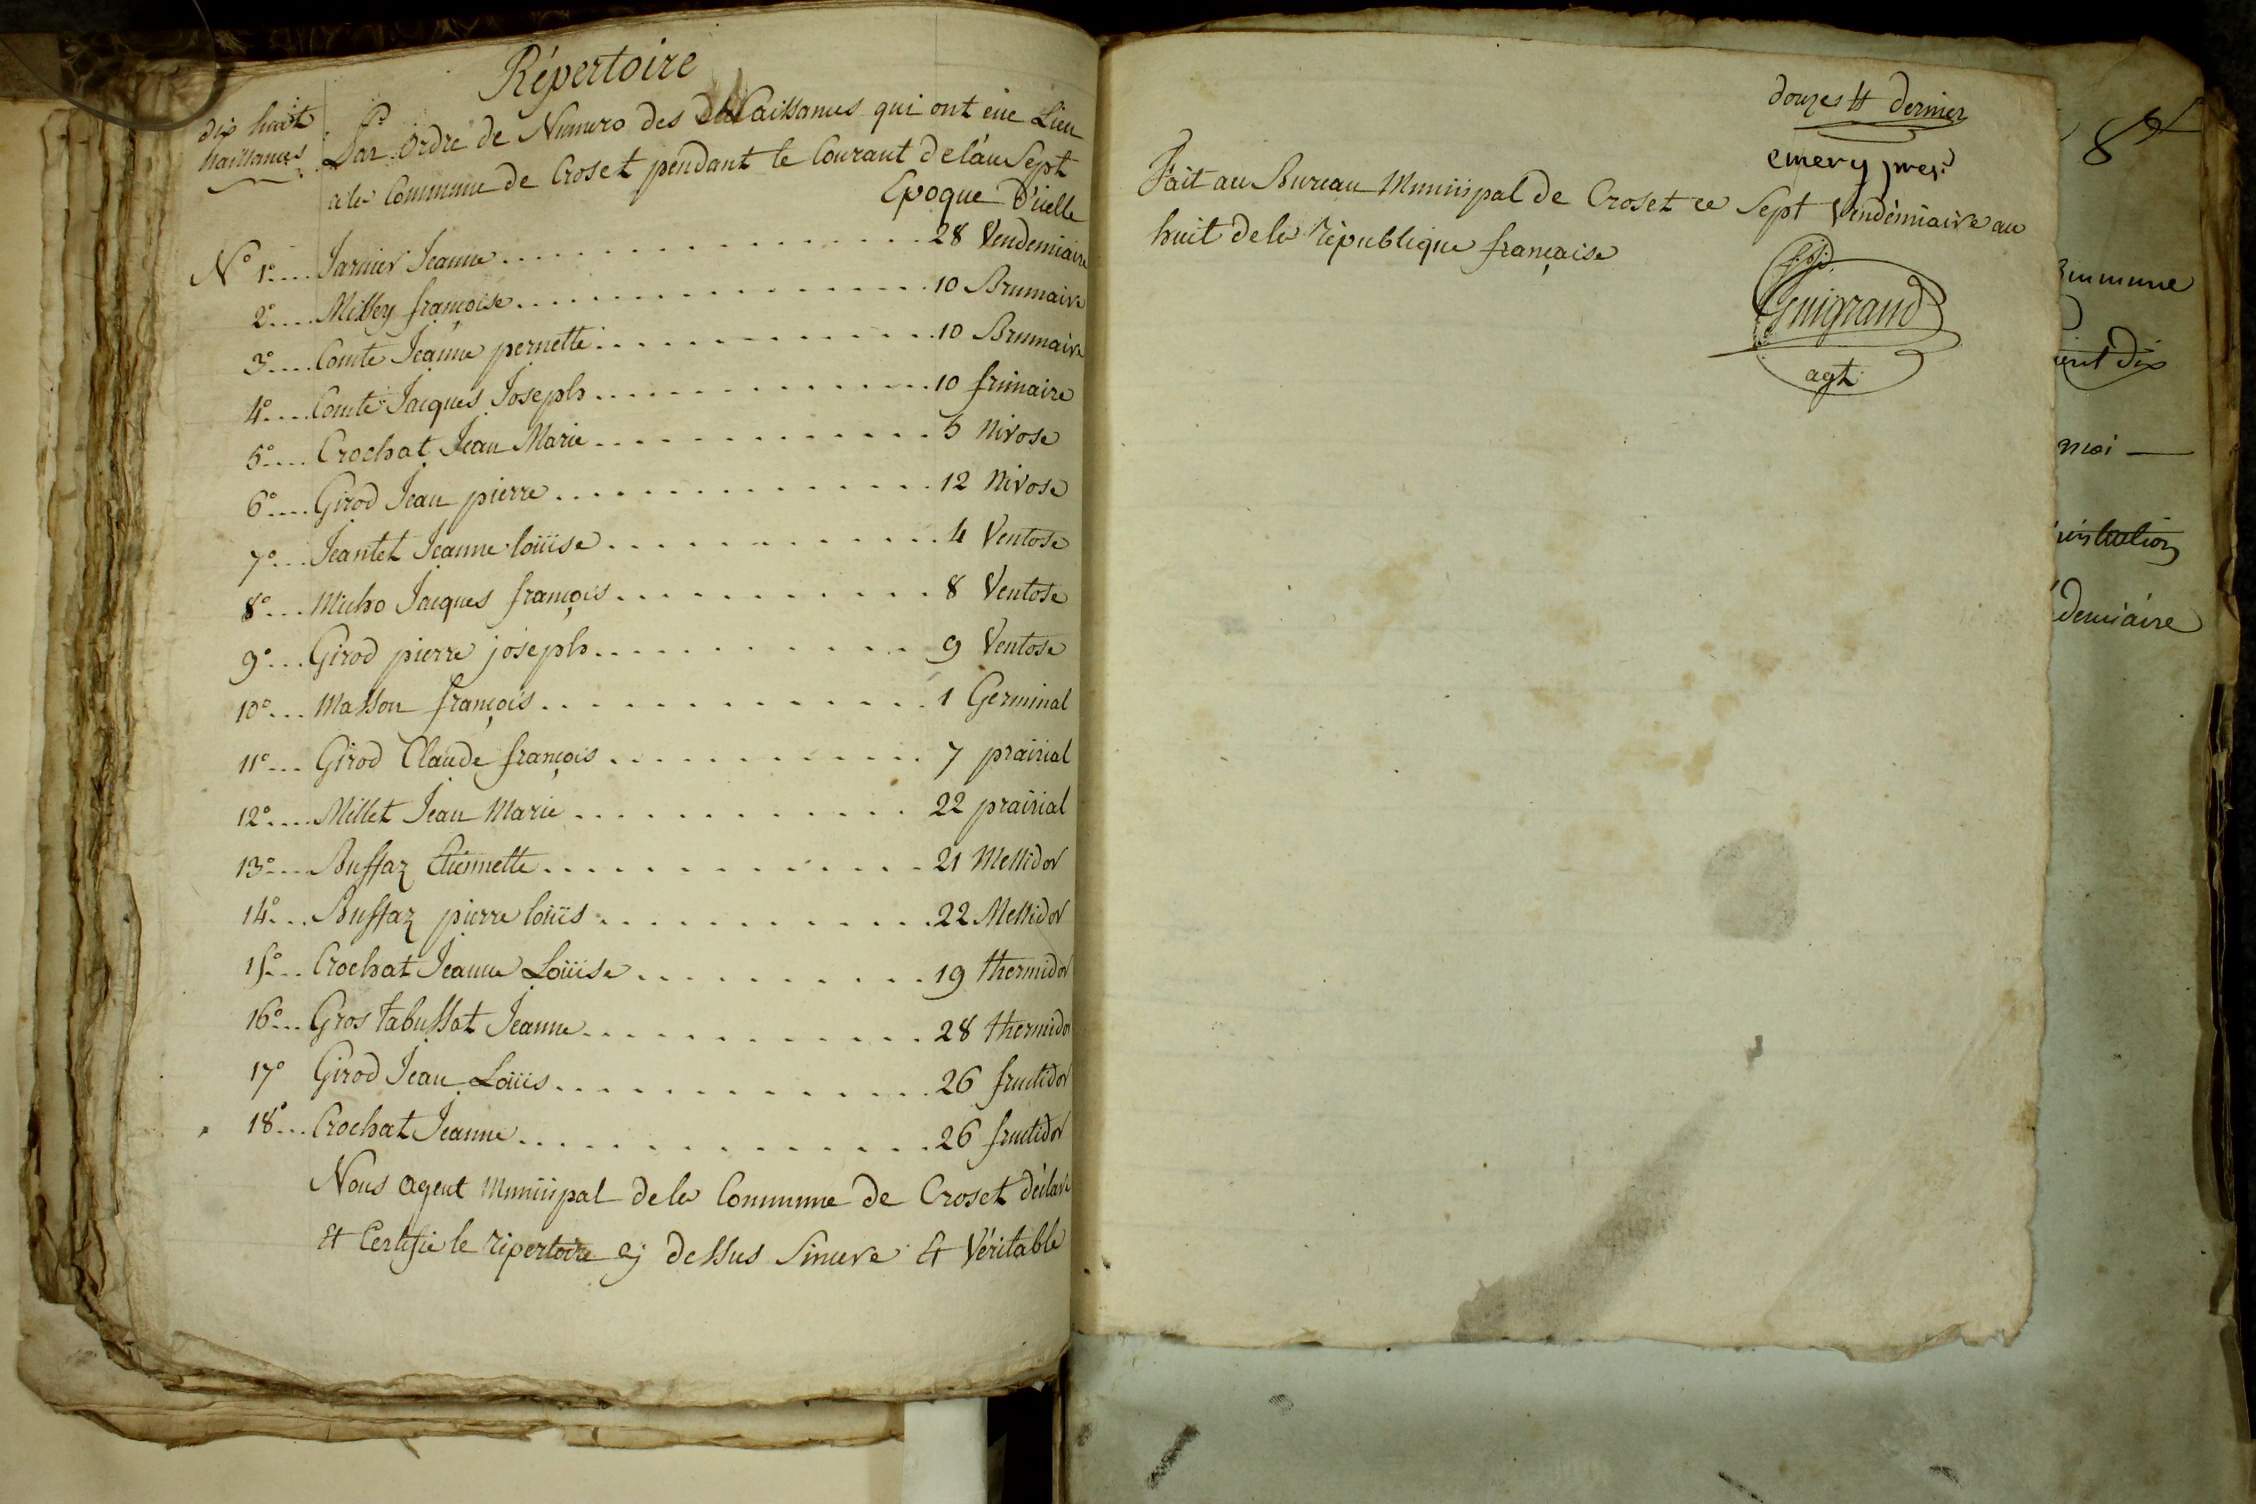 Répertoire
dix huit
naissances
Par Ordre de Numero des Naissances qui ont eue Lieu
a la Commune de Croset pendant le Courant de l'an Sept
Epoque D'icelle
N° 1° Jarnier Jeanne 28 Vendemiaire
2° Milley françoise 10 Brumaire
3° Comte Jeanne pernette 10 Brumaire
4° Comte Jacques Joseph 10 frimaire
5° Crochat Jean Marie 5 Nivose
6° Girod Jean pierre 12 Nivose
7° Jeantet Jeanne loüise 4 Ventose
8° Micho Jacques françois 8 Ventose
9° Girod pierre joseph 9 Ventose
10° Masson françois 1 Germinal
11° Girod Claude françois 7 prairial
12° Millet Jean Marie 22 prairial
13° Buffaz Etiennette 21 Messidor
14° Buffaz pierre loüis 22 Messidor
15° Crochat Jeanne Loüise 19 thermidor
16° Gros tabussat Jeanne 28 thermidor
17° Girod Jean Loüis 26 fructidor
18° Crochat Jeanne 26 fructidor
Nous Agent Municipal de la Commune de Croset déclare
Et Certifie le répertoire cy dessus Sincere Et Véritable
douze & dernier
emery pres.
Fait au Bureau Municipal de Croset ce Sept Vendémiaire an
huit de la République française
Guigrand
agt
8
mmune
dix
moi
demiaire